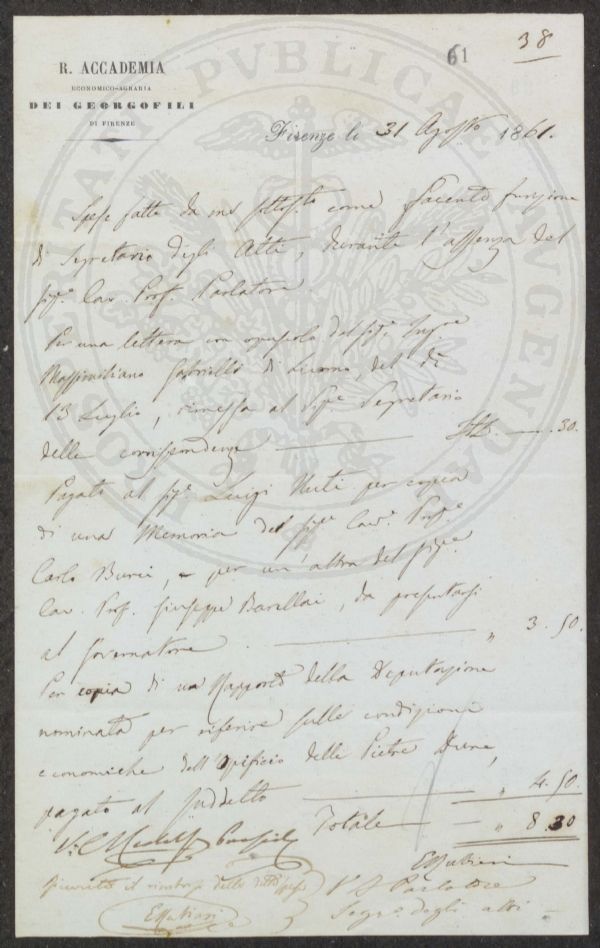 38
61
R. ACCADEMIA
ECONOMICO-AGRARIA
DEI GEORGOFILI
DI FIRENZE
Firenze li 31 Agosto 1861.
Spese fatte da me sottosto come facente funzione
di Segretario degli Atti, durante l'assenza del
Sigr Cav. Prof. Parlatore.
Per una lettera con opuscolo del Sigr
Massimiliano Gabrielli di Livorno, del dì
13 Luglio, rimessa al Sigr Segretario
delle corrispondenze .30.
Pagato al Sigr Luigi Nuti per copia
di una Memoria del Sigr Cavr Profr
Carlo Burci, e per un'altra del Sigr
Cav. Prof. Giuseppe Barellai, da presentarsi
al Governatore " 3.50.
Per copia di un Rapporto della Deputazione
nominata per riferire sulle condizioni
economiche dell'Opificio delle Pietre Dure,
pagato al suddetto " 4.50.
Totale " 8.30
V. Parlatore
Segro degli atti